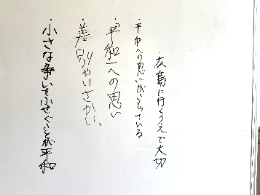 ・広島に行くうえで大切
・平和への思いがどうちがっている
・平和への思い
・差別やいざかい
・小さな争いをふせぐことが平和